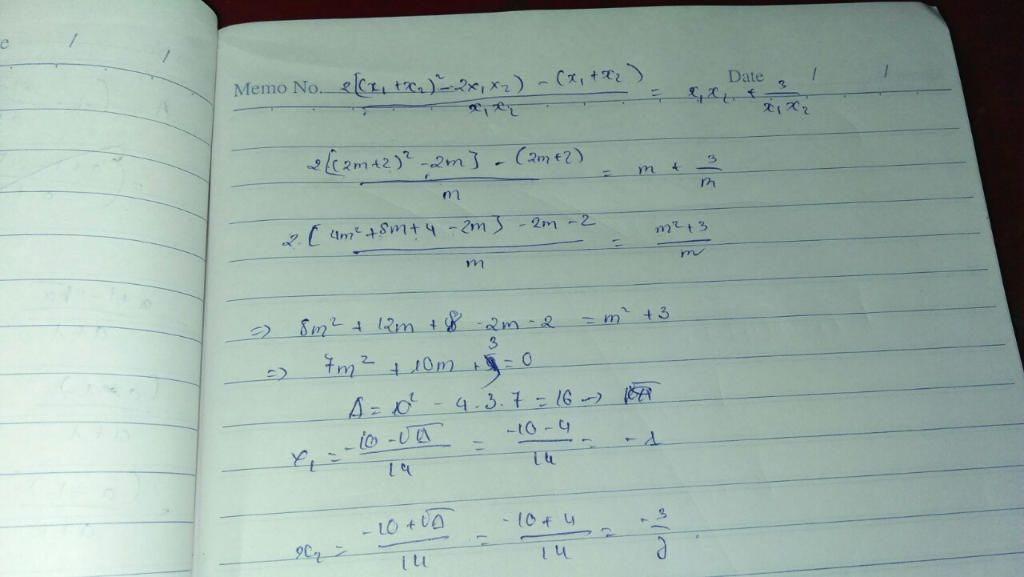 e / /
Memo No. 2[(x₁ + x₂)² - 2x₁x₂) - (x₁ + x₂) / x₁x₂ = x₁x₂ + 3 / x₁x₂ Date / /
2[(2m+2)² - 2m] - (2m+2) / m = m + 3 / m
2 [ 4m² + 8m + 4 - 2m] - 2m - 2 / m = m² + 3 / m
=> 8m² + 12m + 8 - 2m - 2 = m² + 3
=> 7m² + 10m + 3 = 0
Δ = 10² - 4.3.7 = 16 ->
x₁ = -10 - √Δ / 14 = -10 - 4 / 14 = -1
x₂ = -10 + √Δ / 14 = -10 + 4 / 14 = -3 /